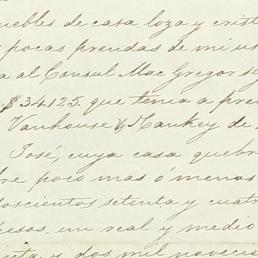 muebles de casa loza y crist
pocas prendas de mi us
a al Consul Mac Gregor se
$34125. que tenia a pre
Vanhouse & Hankey de
José, cuya casa quebr
re poco mas ó menos
doscientos setenta y cuatr
pesos, un real y medio
y dos mil novecis